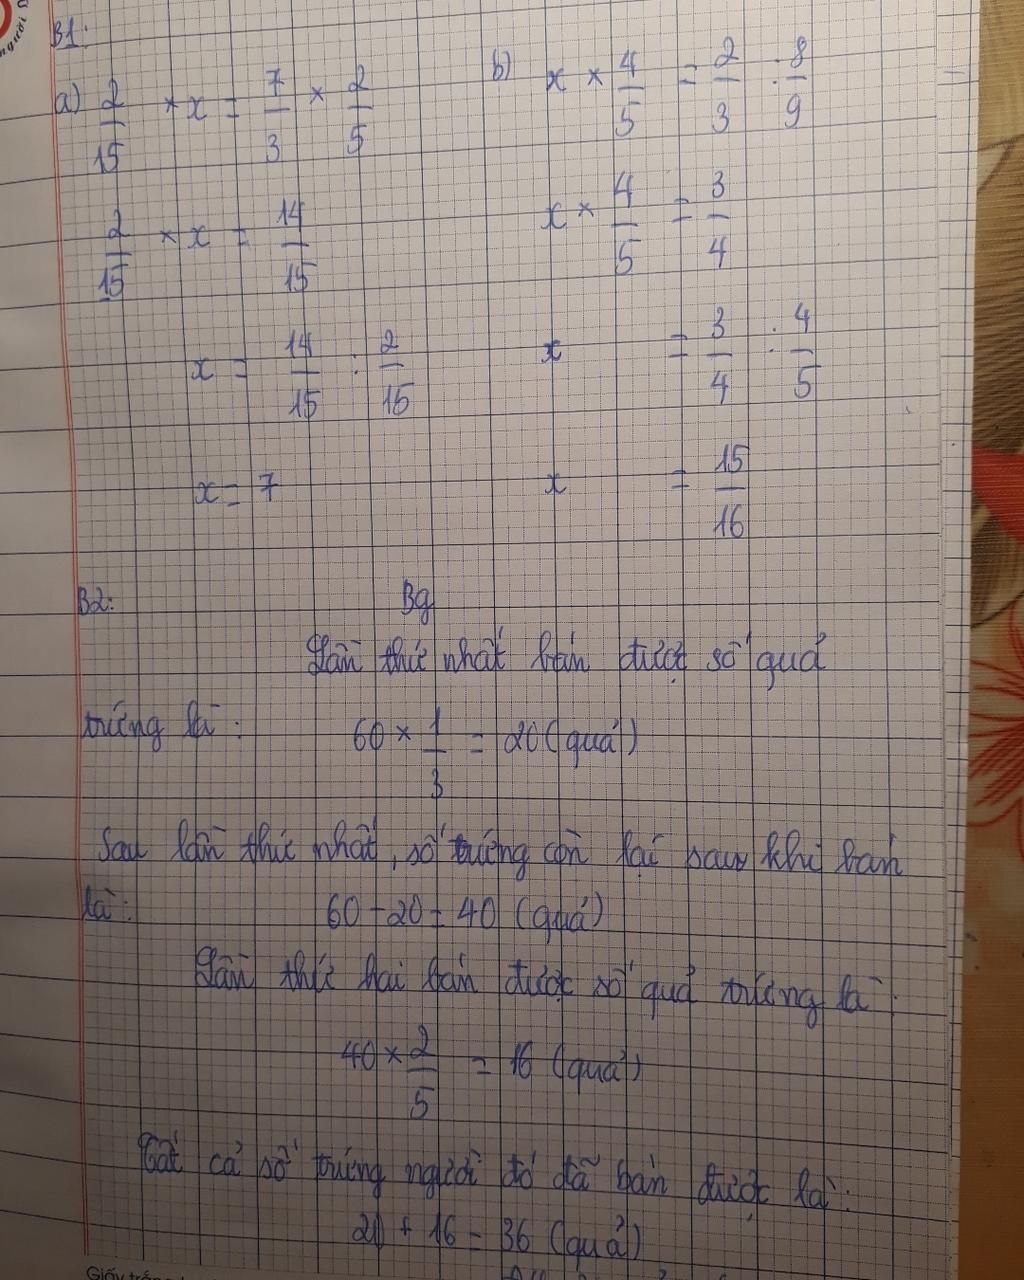 người
B1:
a) 2/15 × x = 7/3 × 2/5
b) x × 4/5 = 2/3 : 8/9
2/15 × x = 14/15
x × 4/5 = 3/4
x = 14/15 : 2/15
x = 3/4 : 4/5
x = 7
x = 15/16
B2:
Bg
Lần thứ nhất bán được số quả
trứng là:
60 × 1/3 = 20 (quả)
Sau lần thứ nhất, số trứng còn lại sau khi bán
là:
60 - 20 = 40 (quả)
Lần thứ hai bán được số quả trứng là:
40 × 2/5 = 16 (quả)
Tất cả số trứng người đó đã bán được là:
20 + 16 = 36 (quả)